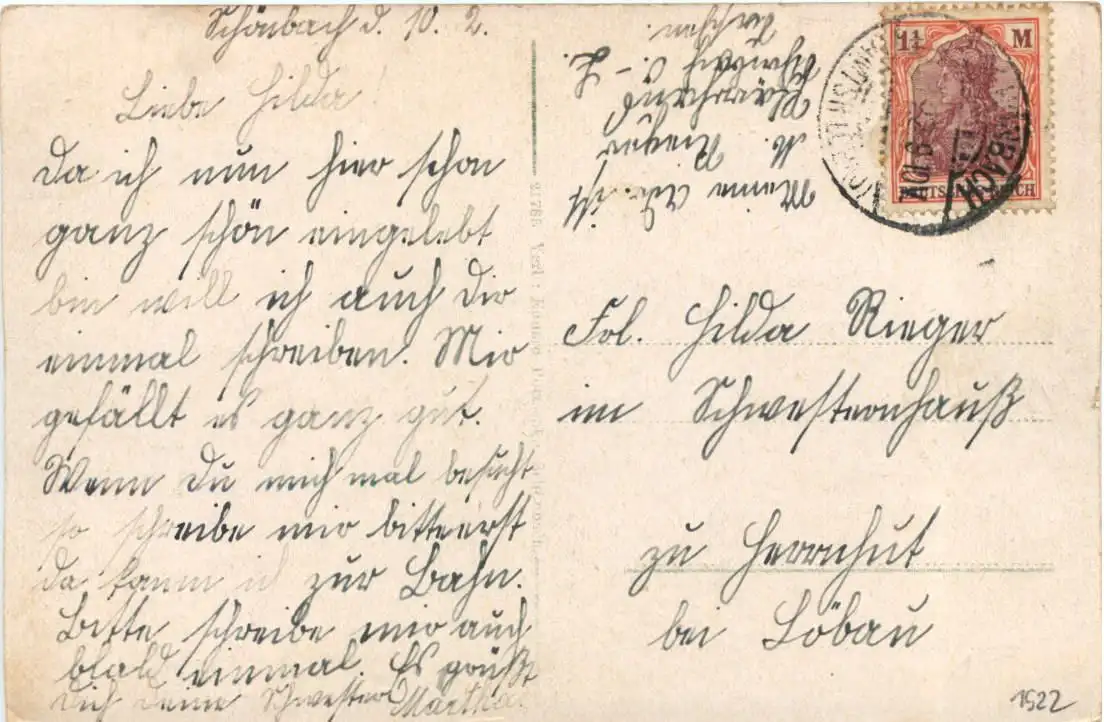 Schönbach d. 10. 2.
Liebe Hilda!
Da ich nun hier schon
ganz schön eingelebt
bin will ich auch Dir
einmal schreiben. Mir
gefällt es ganz gut.
Wenn Du mich mal besucht
so schreibe mir bitte erst
da kann ich zur Bahn.
Bitte schreibe mir auch
blald einmal. Es grüßt
Dich deine Schwester Martha.
Meine Adr. ist
M. Rieger
1¼ M
DEUTSCHES REICH
Frl. Hilda Rieger
im Schwesternhauß
zu Herrnhut
bei Löbau
21788 Verl.
1922